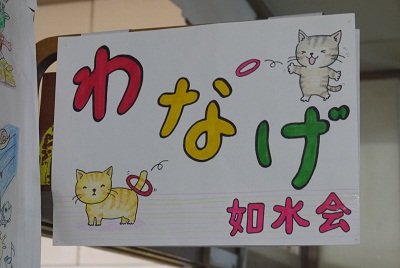 わなげ
如水会